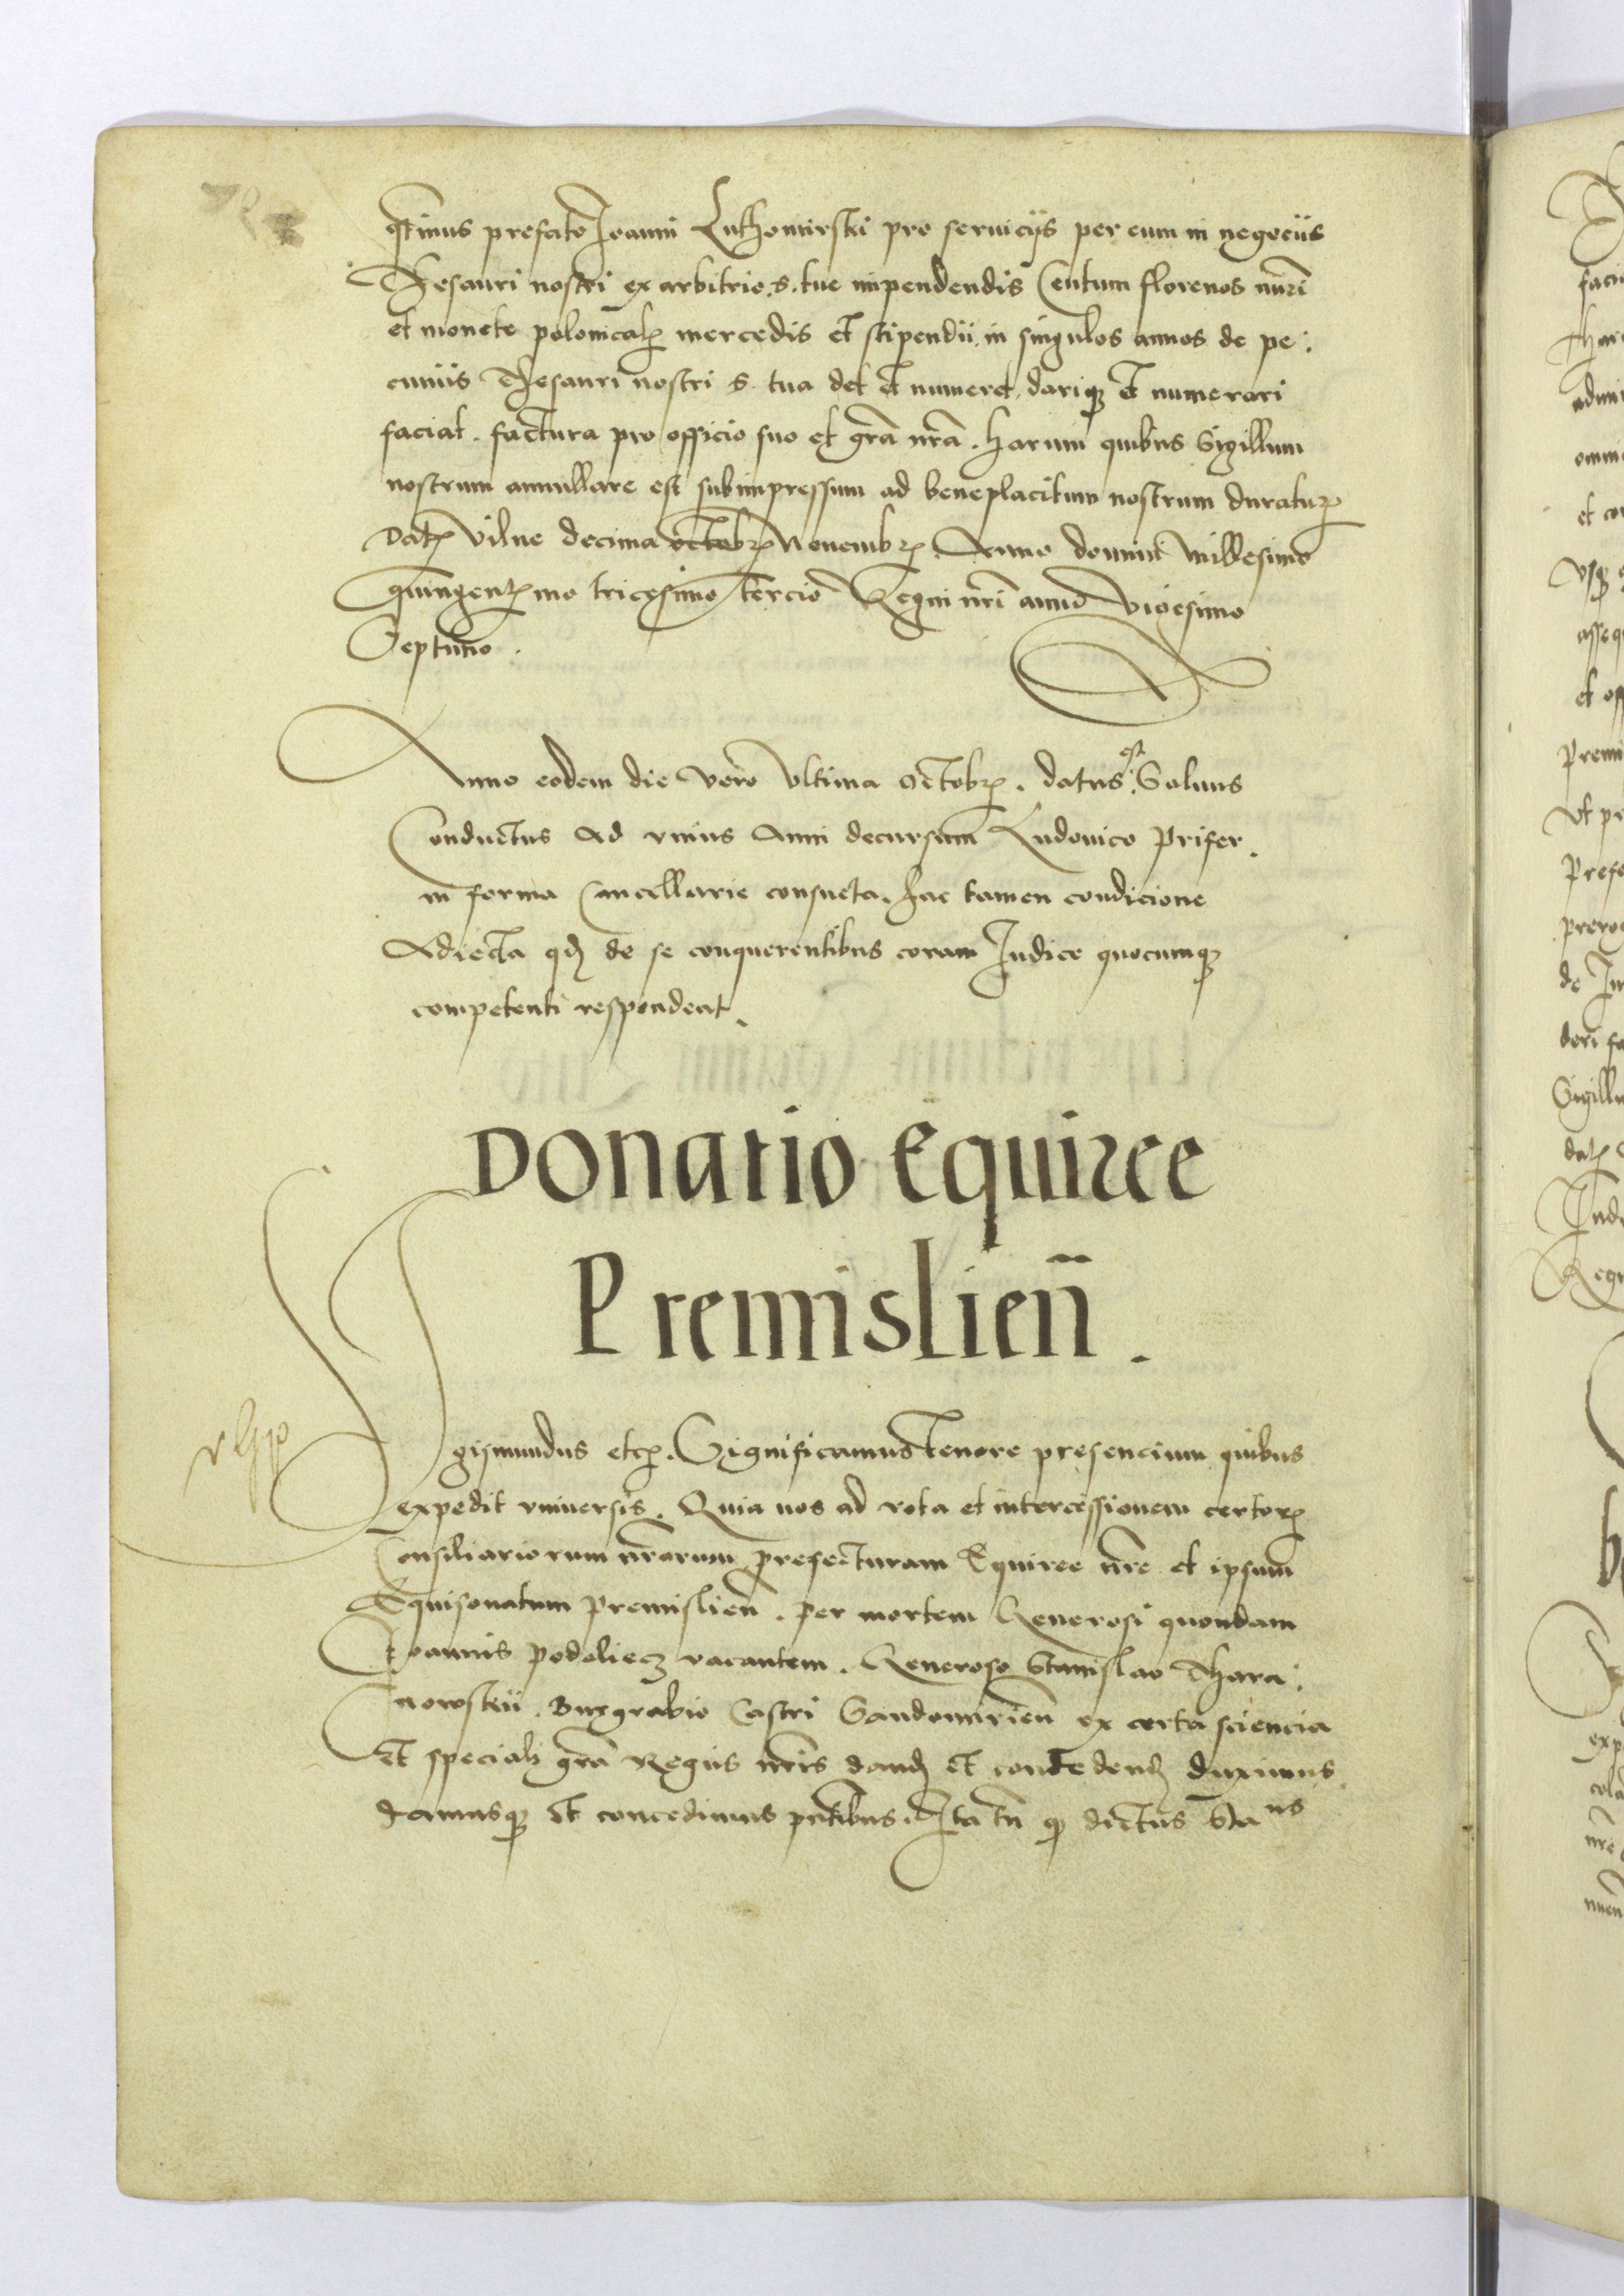 qtinus prefato Joanni Luthomirski pro seruicijs per eum in negociis
Thesauri nostri ex arbitrio .s. tue impendendis Centum florenos nūri
et monete polonicalꝝ mercedis et stipendii in singulos annos de pe:
cuniis Thesauri nostri s. tua det et numeret, dariqꝫ et numerari
faciat. factura pro officio suo et grā nrā. Harum quibus Sigillum
nostrum annullare est subimpressum ad beneplacitum nostrum duraturꝝ
Datꝝ Vilne decima octobrꝝ Nouembrꝝ Anno domini Millesimo
quingenꝝmo tricesimo tercio Regni nrī anno vigesimo
Septimo.
Anno eodem die vero Vltima Octobrꝝ. datus est Saluus
Conductus ad vnius Anni decursum Ludouico Prifer.
in forma Cancellarie consueta. hac tamen condicione
Adiecta qđ de se conquerentibus coram Judice quocumqꝫ
competenti respondeat.
Donatio Equiree
Premislien̄.
Sigismundus etcꝝ. Significamus Tenore presencium quibus
expedit vniuersis. Quia nos ad vota et intercessionem certorꝝ
Consiliariorum nrōrum prefecturam Equiree nrē et ipsum
Equisonatum Premislien̄. per mortem Generosi quondam
Joannis Podoliecz vacantem. Generoso Stanislao Thara:
nowskii. Burgrabio Castri Sandomirien̄ ex certa sciencia
Et speciali grā Regiis nrīs dand et concedend duximus
damusqꝫ et concedimus pn̄tibus. Ita tn̄ qꝫ dictus Staus